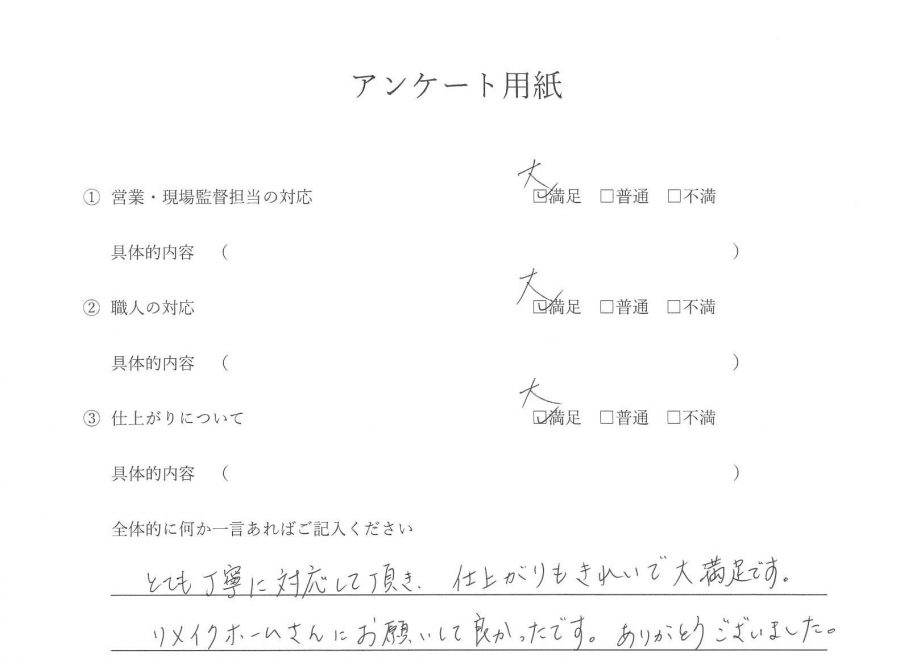 アンケート用紙
大
① 営業・現場監督担当の対応 ☑満足 □普通 □不満
具体的内容 （ ）
大
② 職人の対応 ☑満足 □普通 □不満
具体的内容 （ ）
大
③ 仕上がりについて ☑満足 □普通 □不満
具体的内容 （ ）
全体的に何か一言あればご記入ください
とても丁寧に対応して頂き、仕上がりもきれいで大満足です。
リメイクホームさんにお願いして良かったです。ありがとうございました。